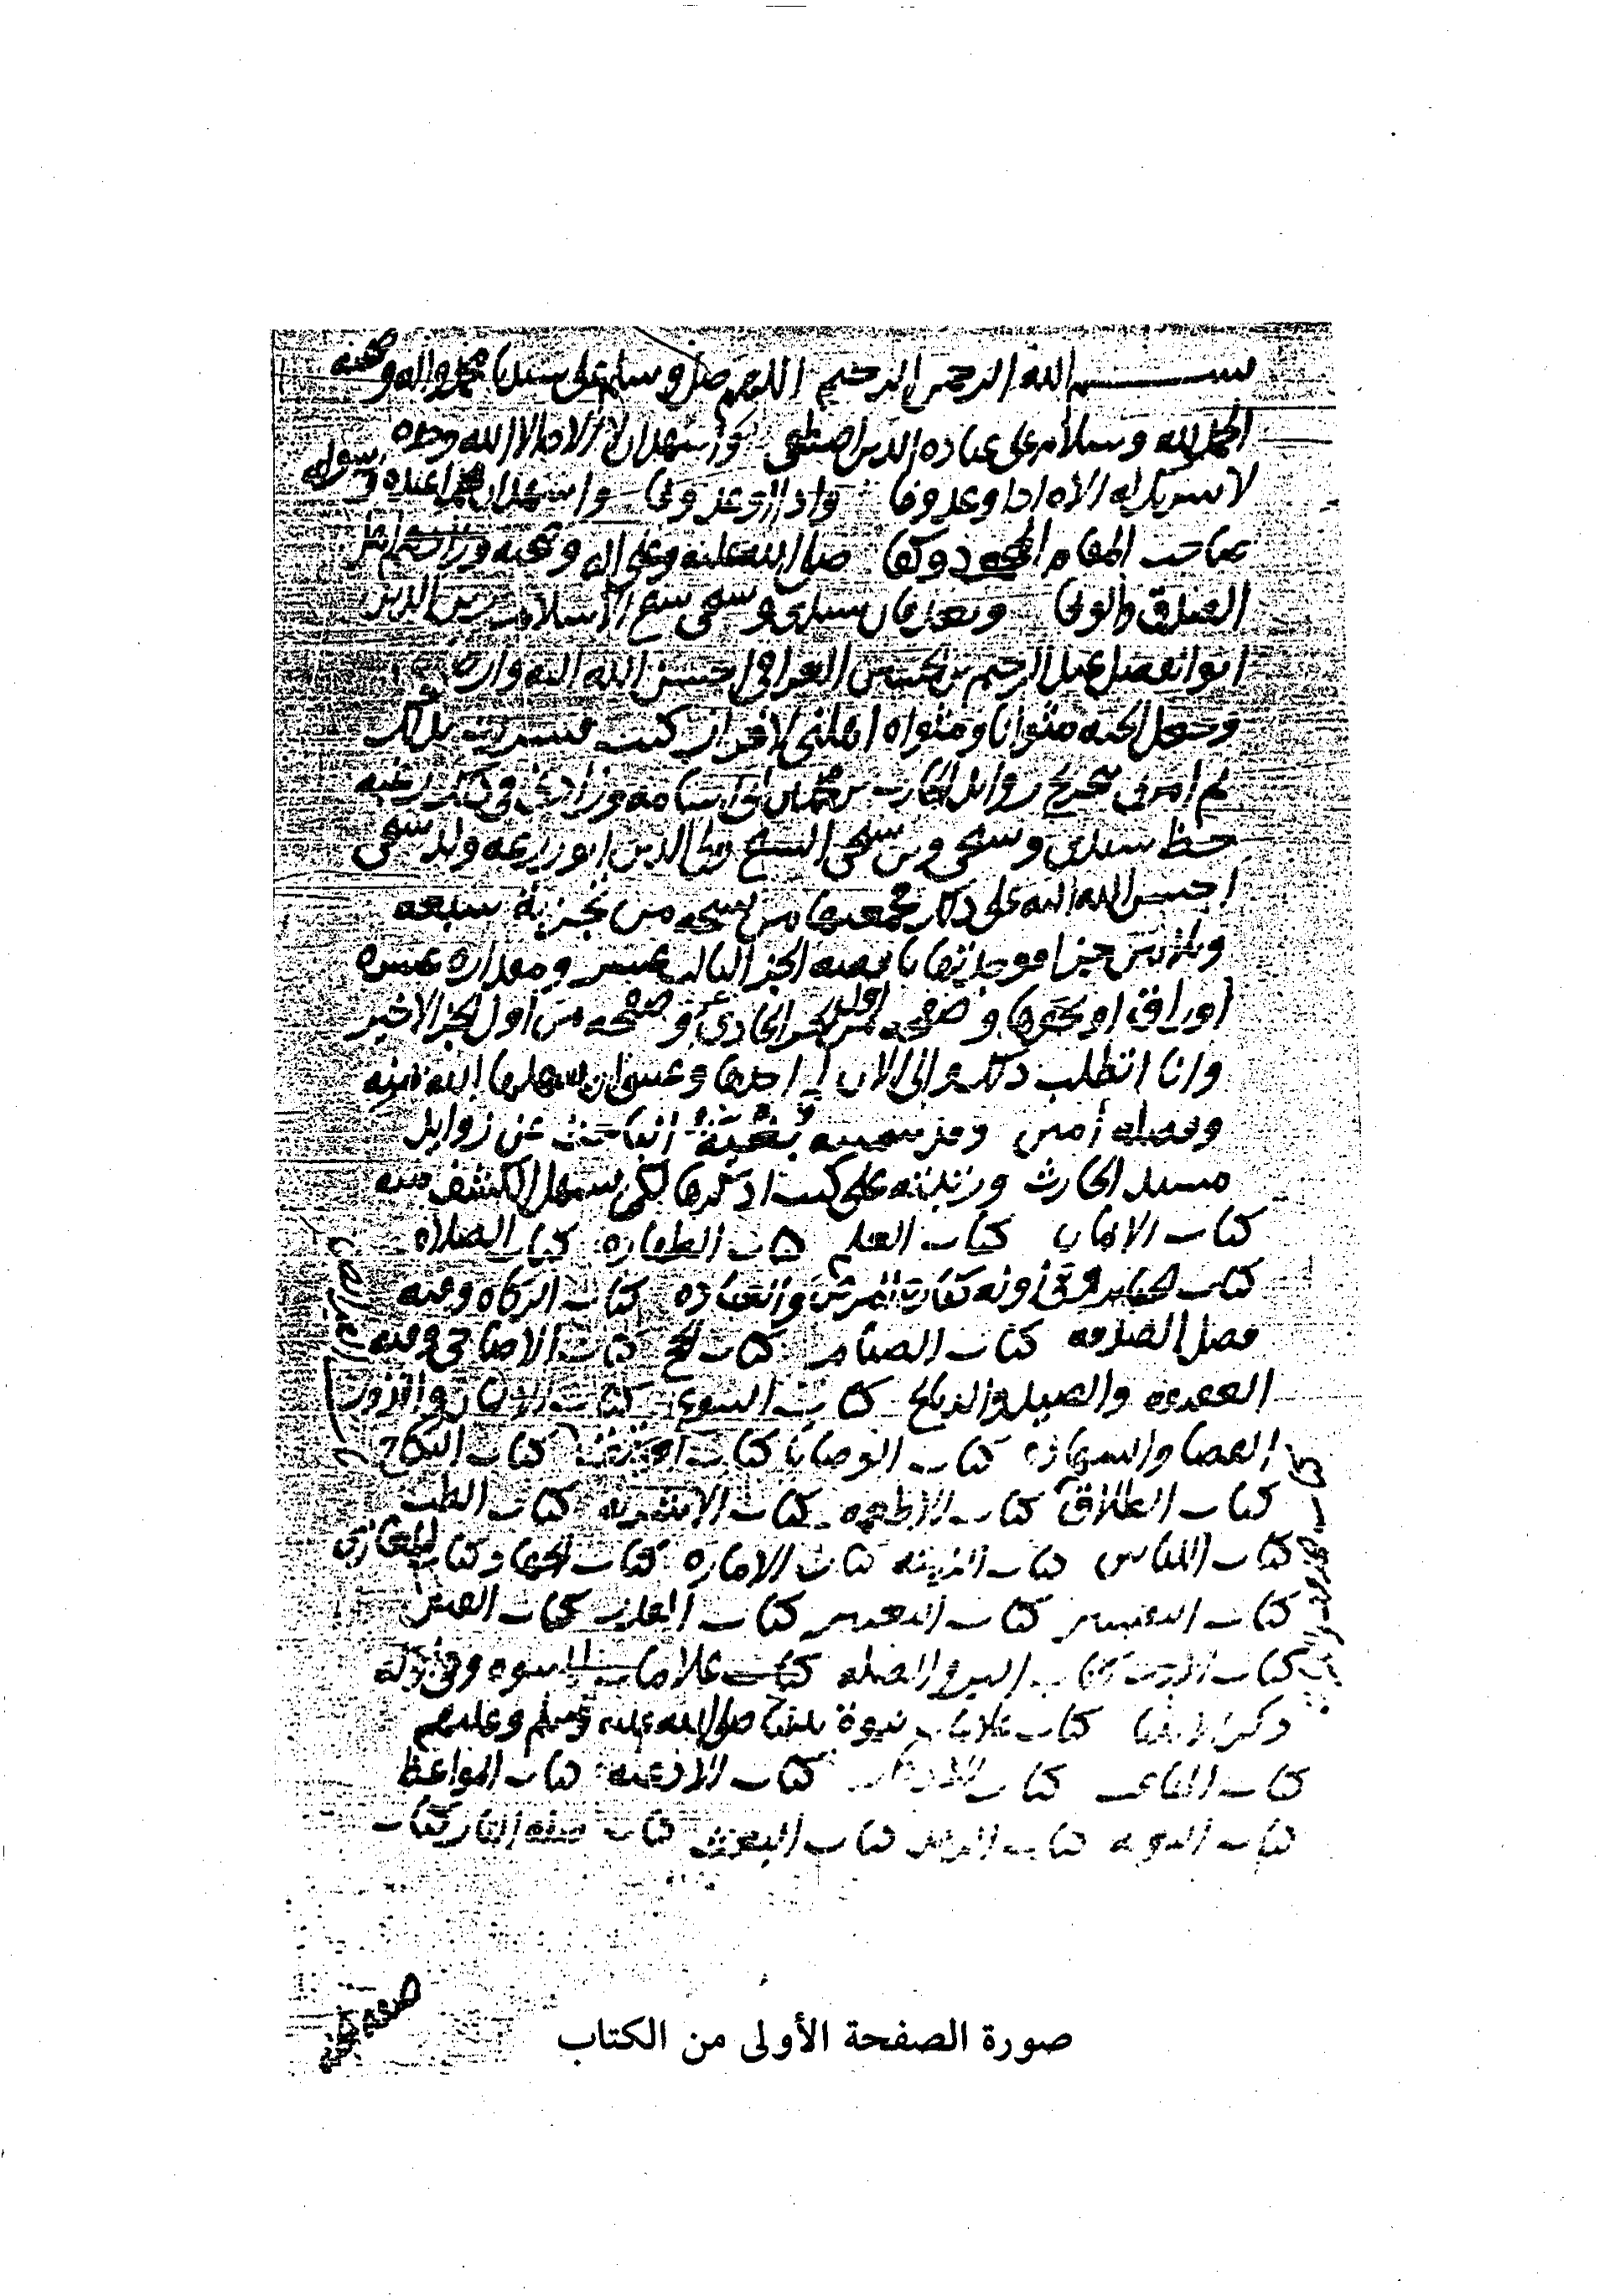 بسم الله الرحمن الرحيم اللهم صل وسلم على سيدنا محمد واله وصحبه
الحمد لله وسلام على عباده الذين اصطفى وأشهد ان لا اله الا الله وحده
لا شريك له الاه اذا وعد وفا واذا اوعد وفى واشهد ان محمدا عبده ورسوله
صاحب المقام المحمود وكفا صلى الله عليه وعلى اله وصحبه
الصدق والوفى وبعد فان سيدى وشيخى شيخ الاسلام زين الدين
ابو الفضل عبد الرحيم بن الحسين العراقى احسن الله اليه وارضاه
وجعل الجنة مثوانا ومثواه اهلنى لافراد كتب فسررت بذلك
ثم امرنى بتخريج زوايد الحارث بن محمد بن ابى اسامه وزادنى فى ذلك رغبه
حظ سيدى وشيخى وبن شيخى الشيخ ولى الدين ابو زرعه ولد شيخى
احسن الله اليه على ذلك فجمعتها من نسخه من تجزية سبعه
وثلاثين جزا فوجدتها ناقصه الجز الثالث عشر ومقداره عشره
اوراق او نحوها وصفحه من اول الجز الحادى عشر وصفحه من اول الجز الاخير
وانا اتطلب ذلك والى الان لم اجدها وعسى ان يسهلها الله بمنه
وفضله أمين وقد سميته بغية الباحث عن زوايد
مسند الحارث ورتبته على كتب اذكرها لكى يسهل الكشف منه
كتاب الايمان كتاب العلم كتاب الطهاره كتاب الصلاه
كتاب الجنايز وفى اوله كفارات المرض والعياده كتاب الزكاه وفيه
فضل الصدقه كتاب الصيام كتاب الحج كتاب الاضاحى وفيه
العقيقه والصيد والذبائح كتاب البيوع كتاب الايمان والنذور
القضا والشهاده كتاب الوصايا كتاب كتاب النكاح
كتاب الطلاق كتاب الاطعمه كتاب الاشربه كتاب الطب
كتاب اللباس كتاب الزينه كتاب الاماره كتاب الجهاد وكتاب المغازى
كتاب التفسير كتاب التعبير كتاب القدر كتاب الفتن
كتاب الادب كتاب البر والصله كتاب علامات النبوه وفى اوله
ذكر الانبيا كتاب علامات نبوة نبينا صلى الله عليه وسلم وعليهم
كتاب المناقب كتاب الاذكار كتاب الادعيه كتاب المواعظ
كتاب التوبه كتاب الزهد كتاب البعث كتاب صفه النار كتاب
صورة الصفحة الأولى من الكتاب